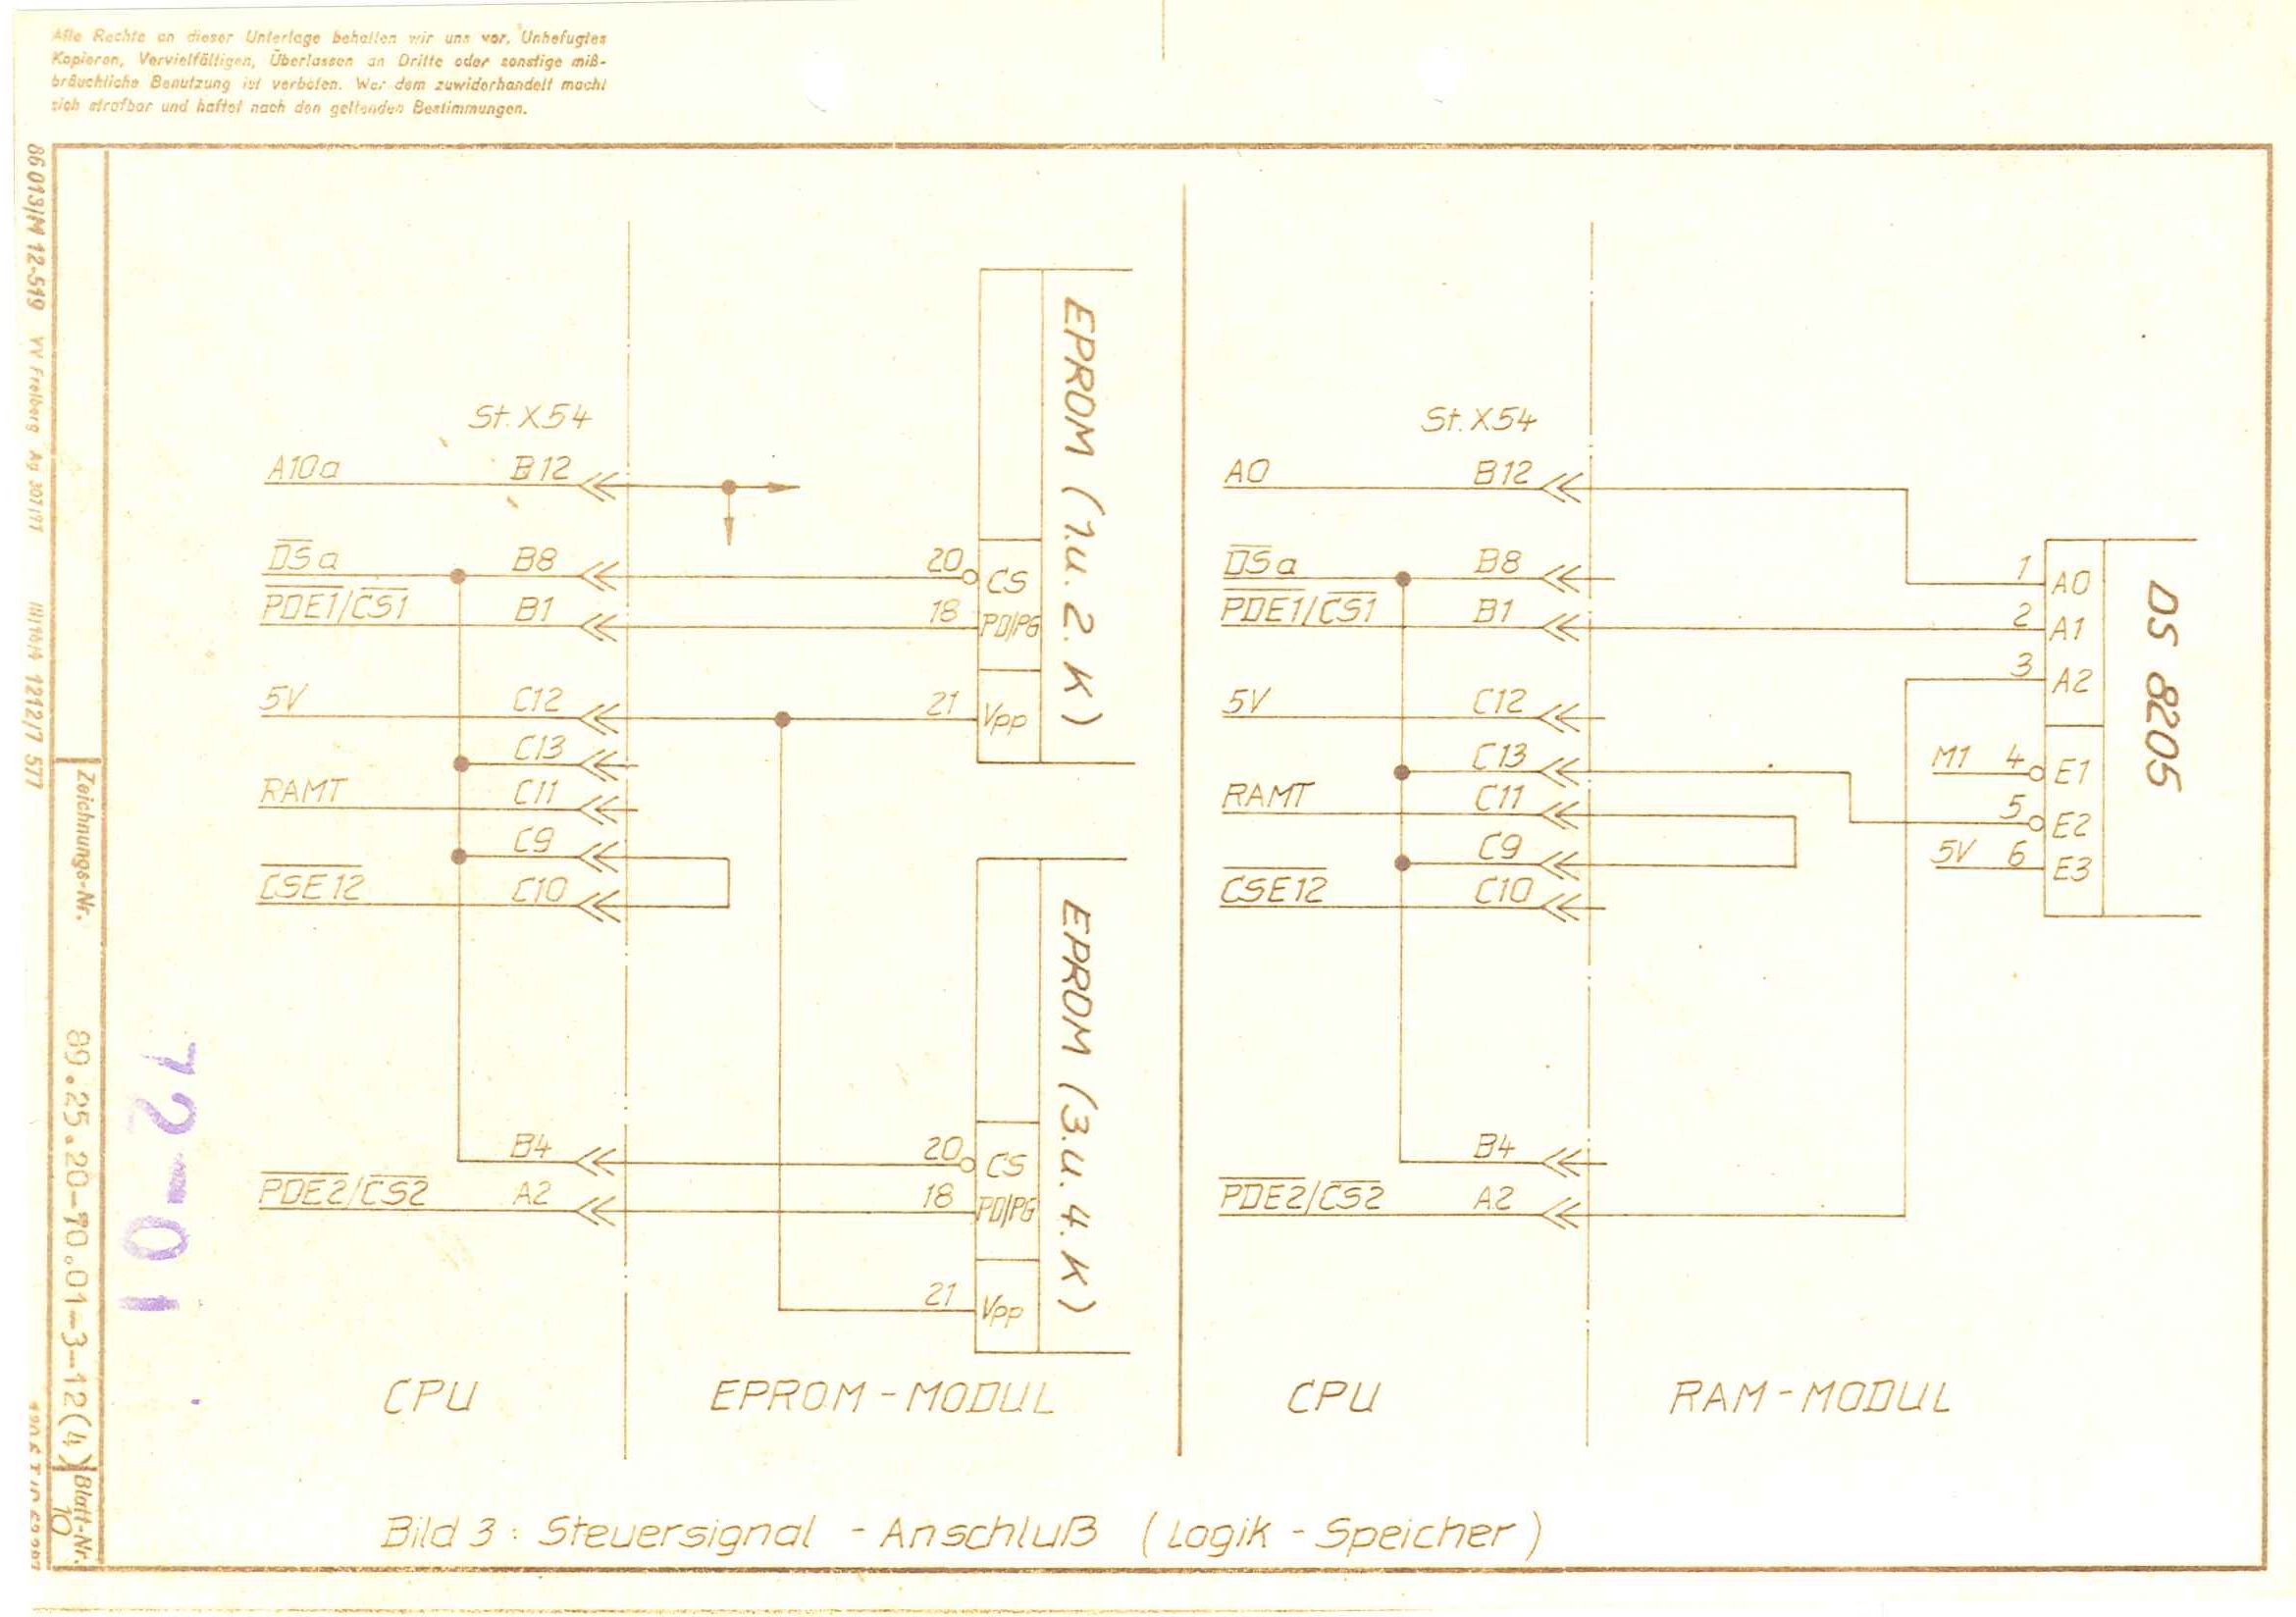 Alle Rechte an dieser Unterlage behalten wir uns vor. Unbefugtes
Kopieren, Vervielfältigen, Überlassen an Dritte oder sonstige miß-
bräuchliche Benutzung ist verboten. Wer dem zuwiderhandelt macht
sich strafbar und haftet nach den geltenden Bestimmungen.
86013/N 12-519 VV Freiberg Ag 307/97 III/18/4 1212/7 577
Zeichnungs-Nr.
89.25.20-90.01-3-12(4)
Blatt-Nr.
10
72-01
St. X54
A10a B12
D̅S̅a B8
P̅D̅E̅1̅/C̅S̅1̅ B1
5V C12
C13
RAMT C11
C9
C̅S̅E̅1̅2̅ C10
B4
P̅D̅E̅2̅/C̅S̅2̅ A2
20 CS
18 PD/PG
21 Vpp
EPROM (1.u. 2. K)
20 CS
18 PD/PG
21 Vpp
EPROM (3.u. 4. K)
CPU
EPROM-MODUL
St. X54
A0 B12
D̅S̅a B8
P̅D̅E̅1̅/C̅S̅1̅ B1
5V C12
C13
RAMT C11
C9
C̅S̅E̅1̅2̅ C10
B4
P̅D̅E̅2̅/C̅S̅2̅ A2
1 A0
2 A1
3 A2
M1 4 E1
5 E2
5V 6 E3
DS 8205
CPU
RAM-MODUL
Bild 3 : Steuersignal - Anschluß (Logik - Speicher)